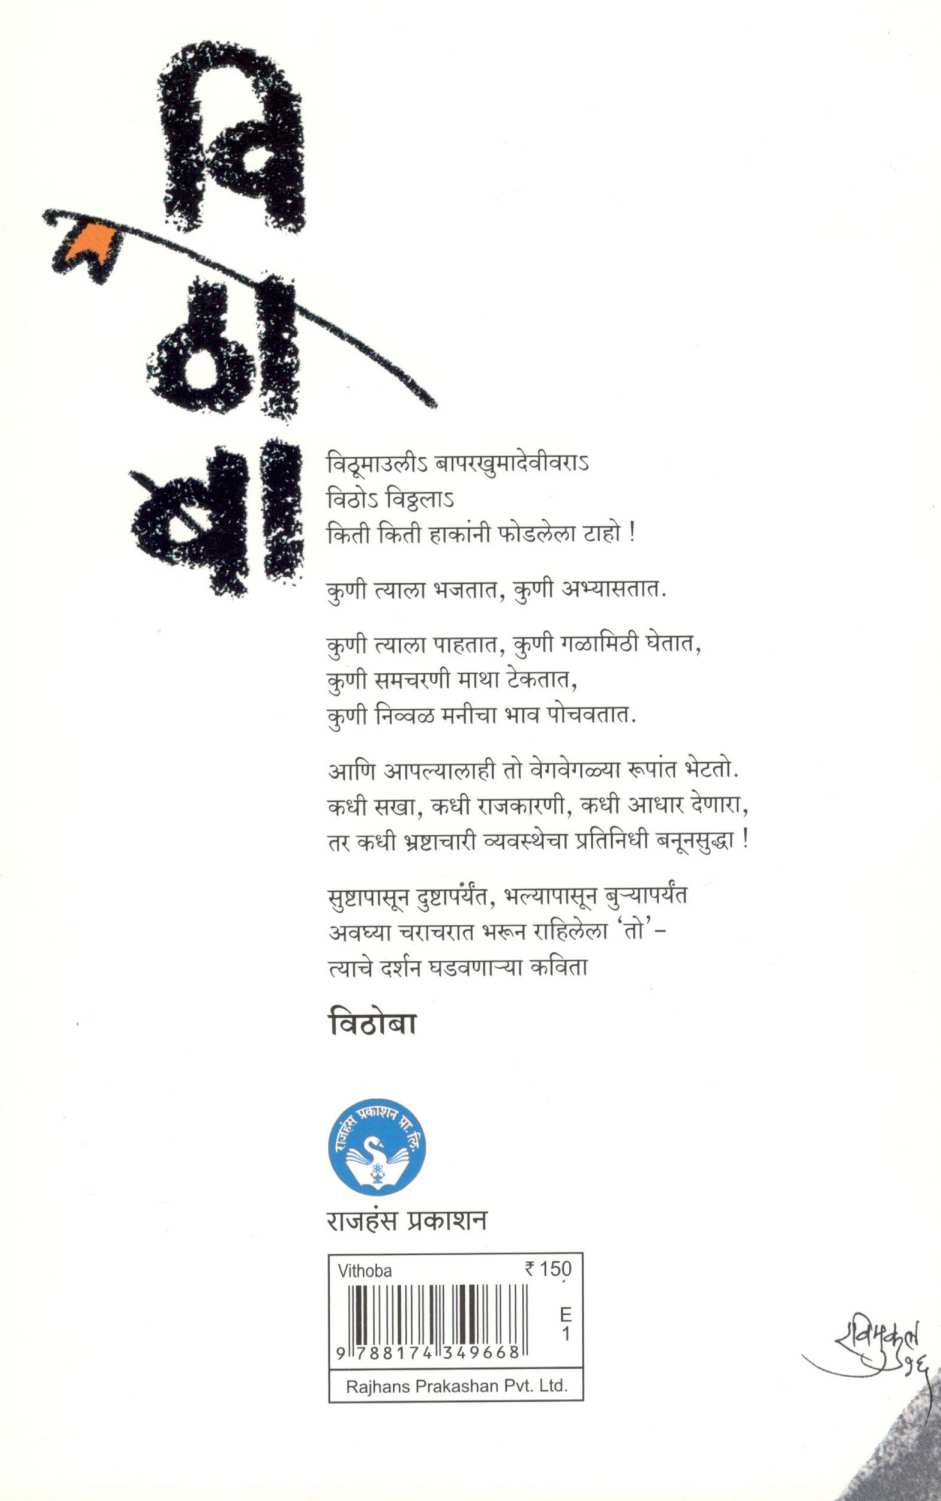 विठोबा
विठूमाउलीऽ बापरखुमादेवीवराऽ
विठोऽ विठ्ठलाऽ
किती किती हाकांनी फोडलेला टाहो !
कुणी त्याला भजतात, कुणी अभ्यासतात.
कुणी त्याला पाहतात, कुणी गळामिठी घेतात,
कुणी समचरणी माथा टेकतात,
कुणी निव्वळ मनीचा भाव पोचवतात.
आणि आपल्यालाही तो वेगवेगळ्या रूपांत भेटतो.
कधी सखा, कधी राजकारणी, कधी आधार देणारा,
तर कधी भ्रष्टाचारी व्यवस्थेचा प्रतिनिधी बनूनसुद्धा !
सुष्टापासून दुष्टापर्यंत, भल्यापासून बुऱ्यापर्यंत
अवघ्या चराचरात भरून राहिलेला ‘तो’–
त्याचे दर्शन घडवणाऱ्या कविता
विठोबा
राजहंस प्रकाशन प्रा. लि.
राजहंस प्रकाशन
Vithoba ₹ 150
E
1
9 788174 349668
Rajhans Prakashan Pvt. Ltd.
रविमुकुल
१६